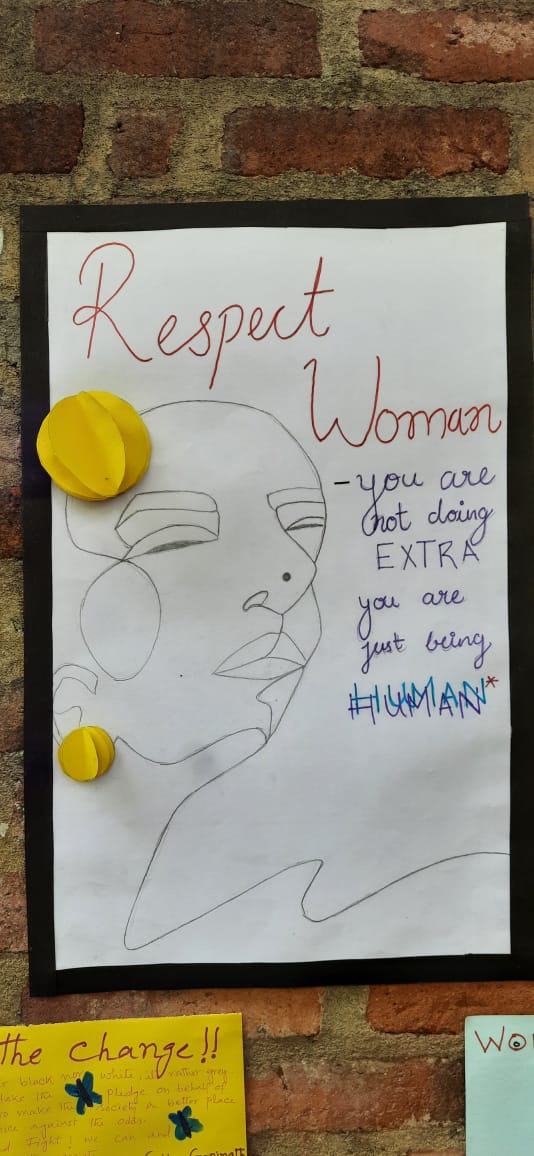 Respect
Woman
- you are
not doing
EXTRA
you are
just being
HUMAN*
the change!!
black nor white, it's rather grey
take the pledge on behalf of
to make the society a better place
against the odds.
Fight! We can and
WO